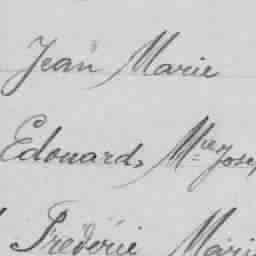 Jean Marie
Edouard, Mie Jose
Fréderic Mari